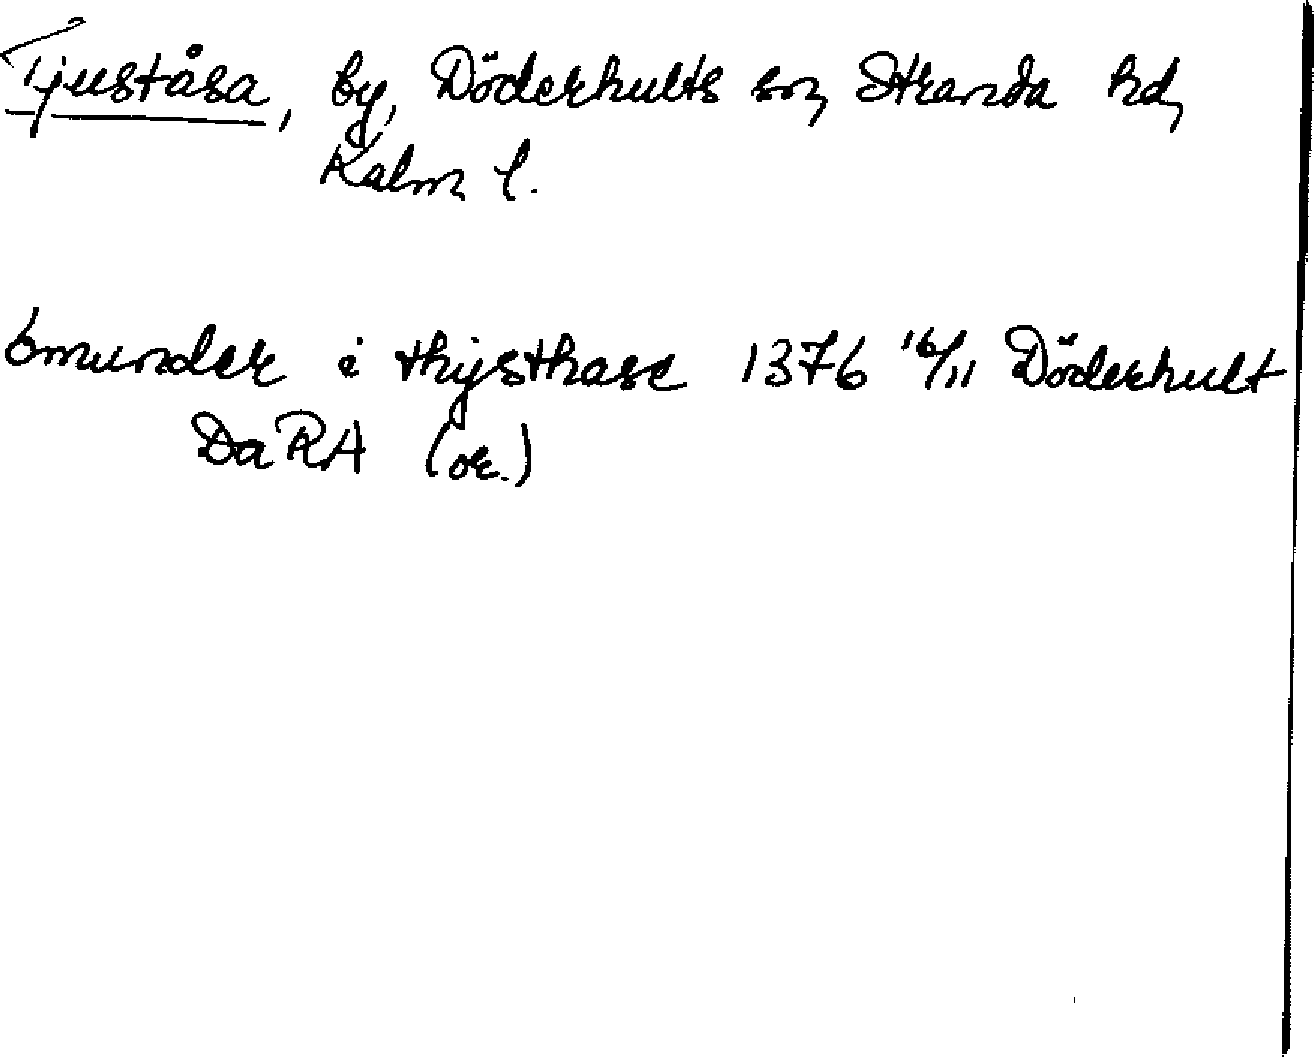 Tjuståsa, by, Döderhults sn, Stranda hd,
Kalm l.
Ömunder i thysthase 1376 16/11 Döderhult
DaRA (or.)